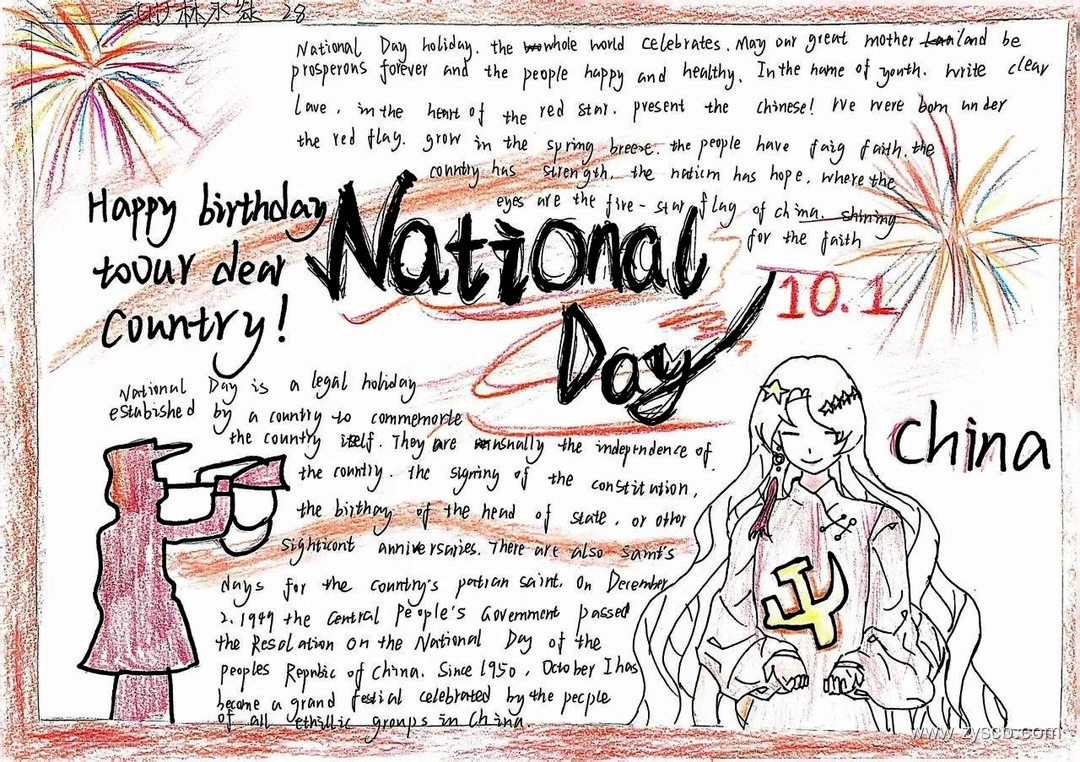 林永
28
National Day holiday. the whole world celebrates. May our great mother land be
prosperons forever and the people happy and healthy. In the name of youth. write clear
Love. in the heart of the red star. present the chinese! We were born under
the red flag. grow in the spring breeze. the people have faig faith. the
country has strength. the nation has hope. where the
eyes are the fire-star flag of china. shining
for the faith
Happy birthday
to our dear
Country!
National
Day
10.1
china
National Day is a legal holiday
estabished by a country to commemorte
the country itself. They are usnally the independence of
the country. the signing of the constitution,
the birthday of the head of state, or other
sighticont anniversaries. There are also saint's
days for the country's patrian saint. On December
2.1949 the Central People's Government passed
the Resolation On the National Day of the
peoples Repnbic of China. Since 1950, October 1 has
become a grand festial celebrated by the pecple
of all ethillic groups in China.
www.zyscb.com